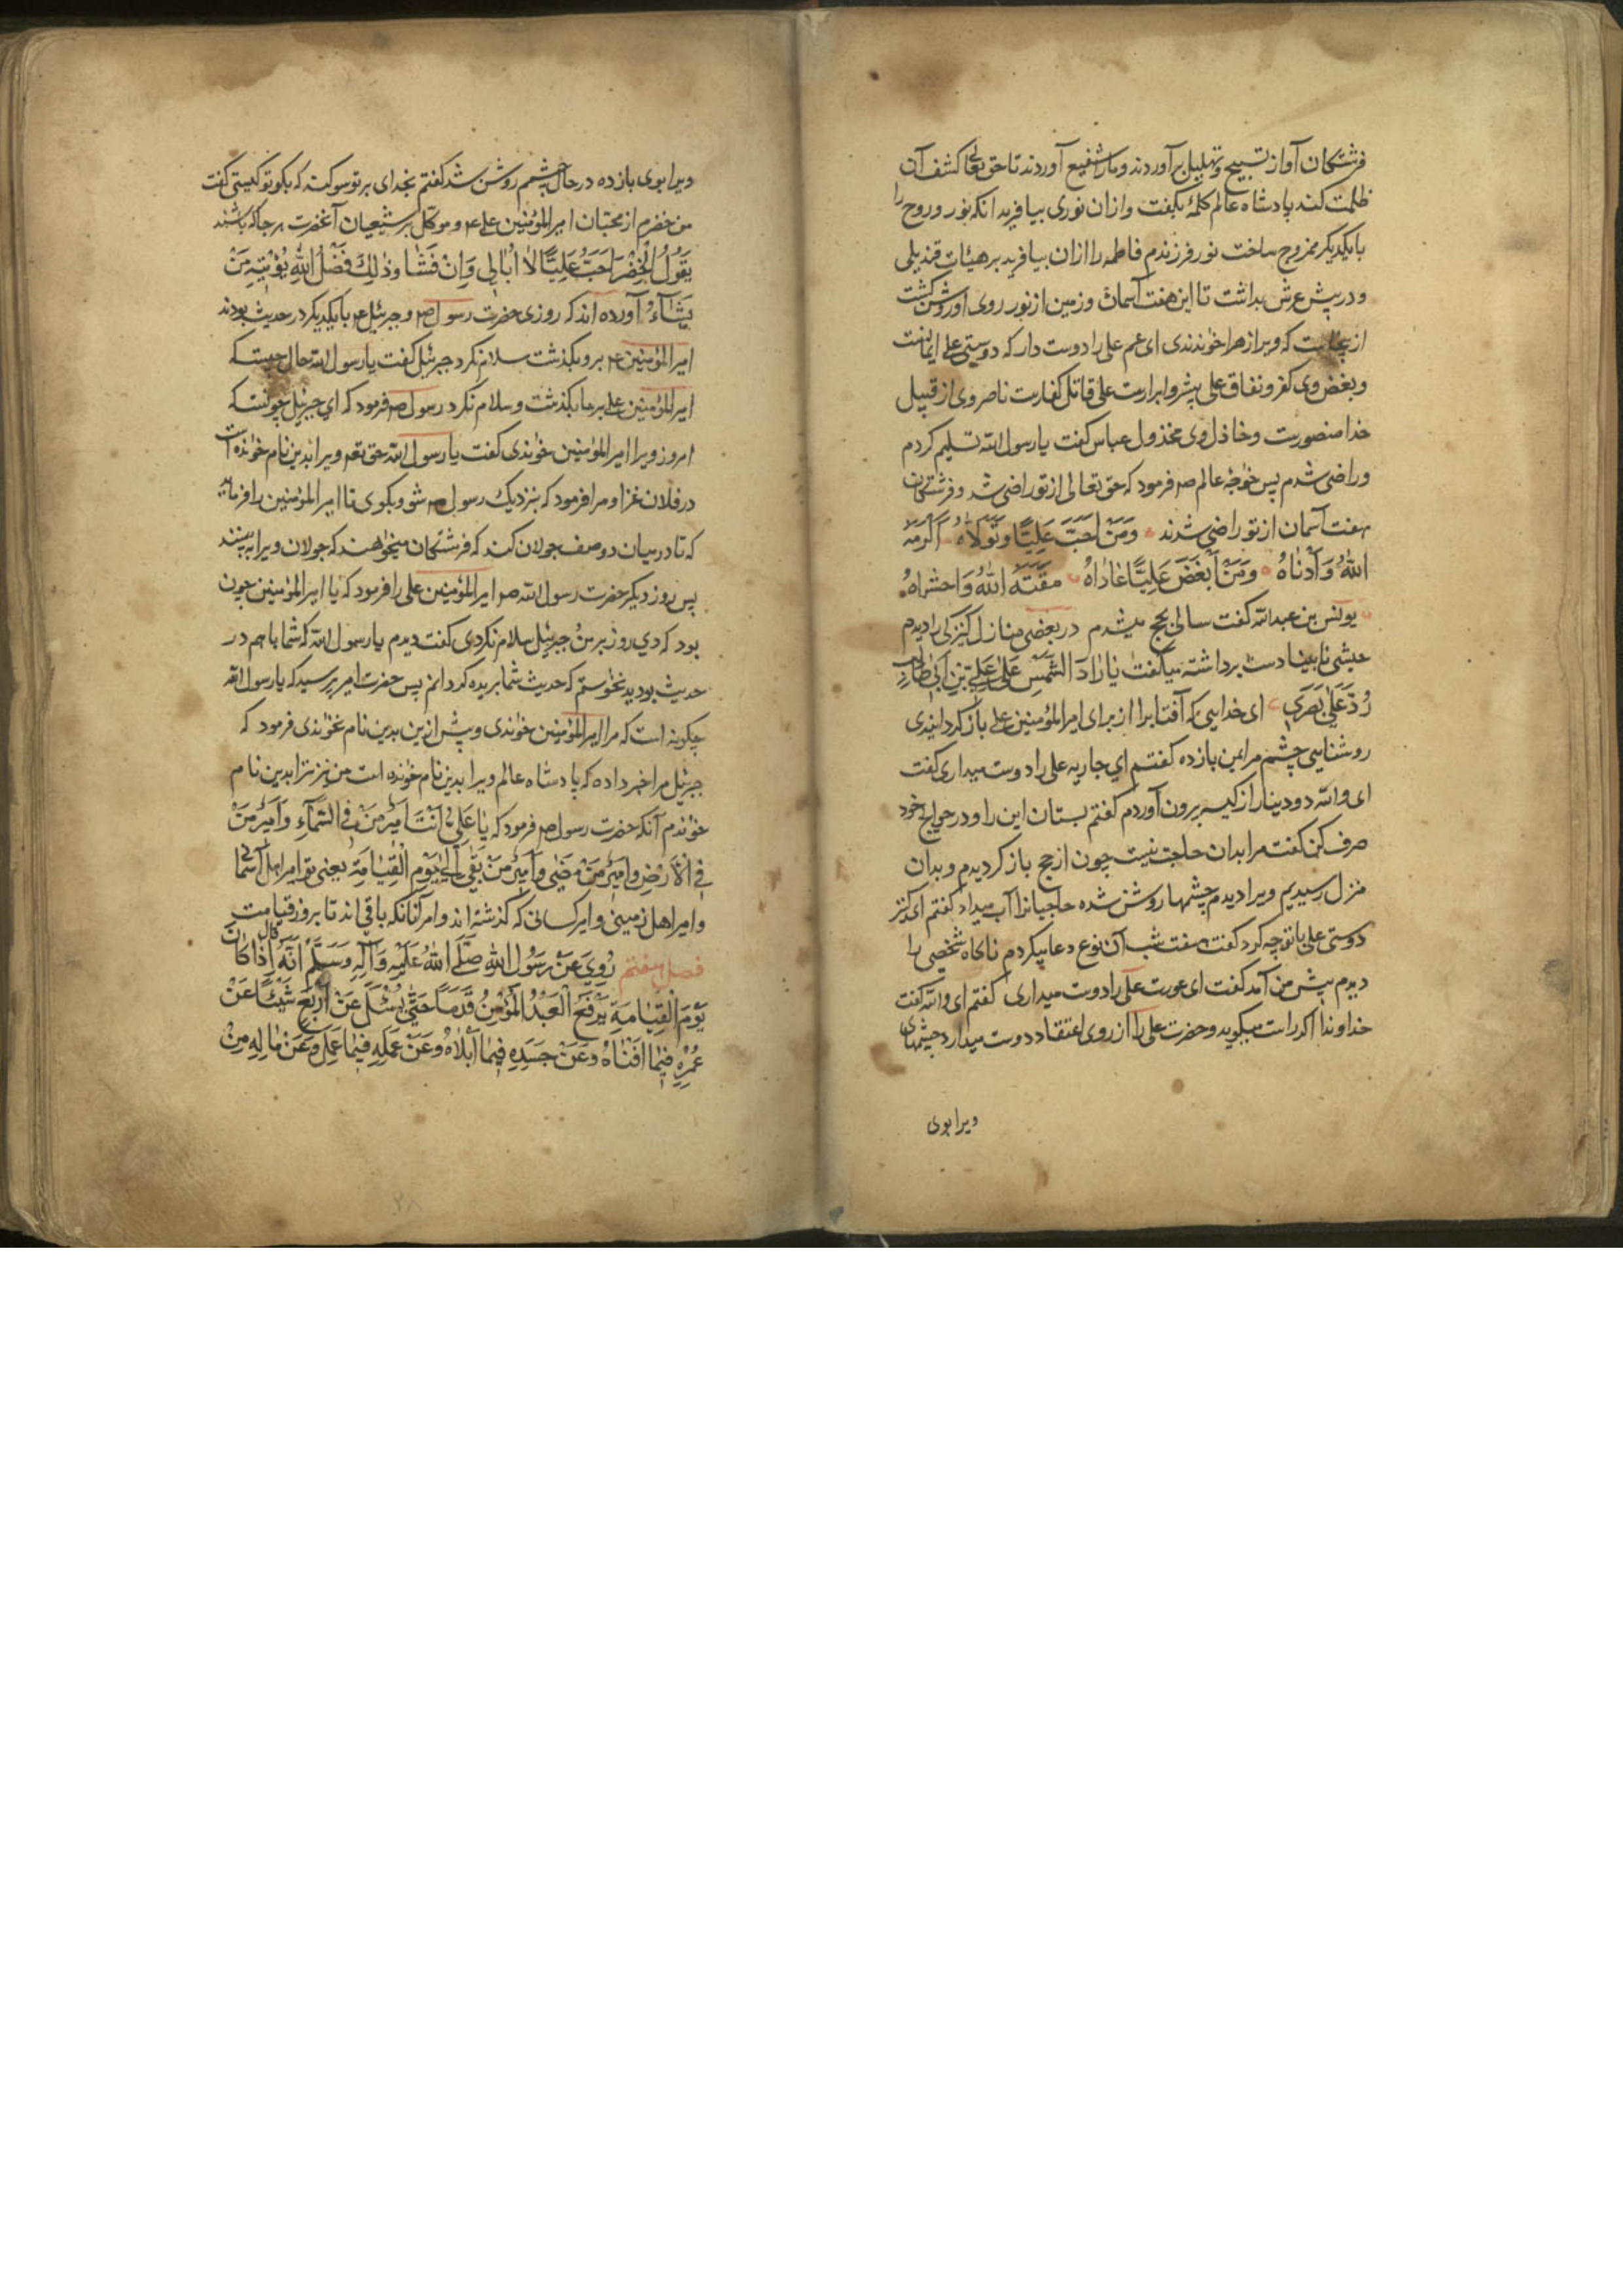 فرشتگان آواز تسبیح و تهلیل برآوردند و مارا شفیع آوردند تا حق تعالی کشف آن
ظلمت کند پادشاه عالم کلمهٔ بگفت و ازان نوری بیافرید انکه نور و روح را
با یکدیگر ممزوج ساخت نور فرزندم فاطمه را ازان بیافرید بر هیئات قندیلی
و در پیش عرش بداشت تا این هفت آسمان و زمین از نور روی او روشن گشت
ازینجاست که ویرا زهرا خوٰندندی ای عم علی را دوست دار که دوستی علی ایمانست
و بغض وی کفر و نفاق علی پیشرو ابرارست علی قاتل کفارست ناصر وی از قبیل
خدا منصورست و خاذل وی مخذول عباس گفت یا رسول الله تسلیم کردم
و راضی شدم پس خوٰجهٔ عالم ص فرمود که حق تعالی از تو راضی شد و فرشتگان
هفت آسمان از تو راضی شدند وَمَنْ اَحَبَّ عَلِیًّا وَتَوَلَّاهُ اَکْرَمَهُ
اللهُ وَاَدْنَاهُ وَمَنْ اَبْغَضَ عَلِیًّا عَادَاهُ مَقَتَهُ اللهُ وَاَحشَاهُ
یونس بن عبدالله گفت سالی بحج میشدم در بعضی منازل کنیزکی را دیدم
حبشی نابینا دست برداشته میگفت یَا رَادَّ الشَّمْسِ عَلٰی عَلِیِّ بْنِ اَبِی طَالِبٍ
رُدَّ عَلَیَّ بَصَرِی ای خدایی که آفتابرا از برای امیرالمؤمنین علی باز گردانیدی
روشنایی چشم مرا بمن بازده گفتم ای جاریه علی را دوست میداری گفت
ای والله دو دینار از کیسه بیرون آوردم گفتم بستان این را و در حوایج خود
صرف کن گفت مرا بدان حاجت نیست چون از حج باز گردیدم و بدان
منزل رسیدیم ویرا دیدم چشمها روشن شده حاجیانرا آب میداد گفتم ای کنیزک
دوستی علی با تو چه کرد گفت هفت شب آن نوع دعا میکردم ناگاه شخصی را
دیدم پیش من آمد گفت ای عورت علی را دوست میداری گفتم ای والله گفت
خداوندا اگر راست میگوید و حضرت علی را از روی اعتقاد دوست میدارد چشمهای
ویرا بوی
ویرا بوی بازده در حال چشمم روشن شد گفتم بخدای بر تو سوکند که بگو تو کیستی گفت
من خضرم از محبّان امیرالمؤمنین علی ع و موکّل بر شیعیان آنحضرت هر جا که باشند
یَقُولُ الْخِضْرُ اَحَبَّ عَلِیًّا لَا اُبَالِی وَاِنْ فَشَا وَذٰلِکَ فَضْلُ اللهِ یُؤْتِیهِ مَنْ
یَشَآءُ آورده اند که روزی حضرت رسول ص و جبرئیل ع با یکدیگر در حدیث بودند
امیرالمؤمنین ع برو بگذشت سلام نکرد جبرئیل گفت یا رسول الله حال چیست که
امیرالمؤمنین علی بر ما بگذشت و سلام نکرد رسول ص فرمود که ای جبرئیل چونست که
امروز ویرا امیرالمؤمنین خوٰندی گفت یا رسول الله حق تعه ویرا بدین نام خوٰنده است
در فلان غزا و مرا فرمود که بنزدیک رسول ص شو و بگوی تا امیرالمؤمنین را فرماید
که تا در میان دو صف جولان کند که فرشتگان میخواهند که جولان ویرا ببینند
پس روز دیگر حضرت رسول الله ص امیرالمؤمنین علی را فرمود که یا امیرالمؤمنین چون
بود که دی روز بر من و جبرئیل سلام نکردی گفت دیدم یا رسول الله که شما با هم در
حدیث بودید نخوٰستم که حدیث شما بریده گردانم پس حضرت امیر پرسید که یا رسول الله
چگونه است که مرا امیرالمؤمنین خوٰندی و پیش ازین بدین نام نخوٰندی فرمود که
جبرئیل مرا خبر داده که پادشاه عالم ویرا بدین نام خوٰنده است من نیز ترا بدین نام
خوٰندم آنکه حضرت رسول ص فرمود که یَا عَلِیُّ اَنْتَ اَمِیرُ مَنْ فِی السَّمَآءِ وَاَمِیرُ مَنْ
فِی الْاَرْضِ وَاَمِیرُ مَنْ مَضٰی وَاَمِیرُ مَنْ بَقٰی اِلٰی یَوْمِ الْقِیٰامَةِ یعنی تو امیر اهل آسمانی
و امیر اهل زمینی و امیر کسانی که گذشته اند و امیر آنانکه باقی اند تا بروز قیامت
فصل هفتم رُوِیَ عَنْ رَسُولِ اللهِ صَلَّی اللهُ عَلَیْهِ وَآلِهِ وَسَلَّمَ اَنَّهُ قَالَ اِذَا کَانَ
یَوْمَ الْقِیٰامَةِ یَرْفَعُ الْعَبْدُ الْمُؤْمِنُ قَدَمًا حَتّٰی یُسْئَلَ عَنْ اَرْبَعِ شَیْئًا عَنْ
عُمْرِهِ فِیمَا اَفْنَاهُ وَعَنْ جَسَدِهِ فِیمَا اَبْلَاهُ وَعَنْ عَمَلِهِ فِیمَا عَمِلَ وَعَنْ مَالِهِ مِنْ